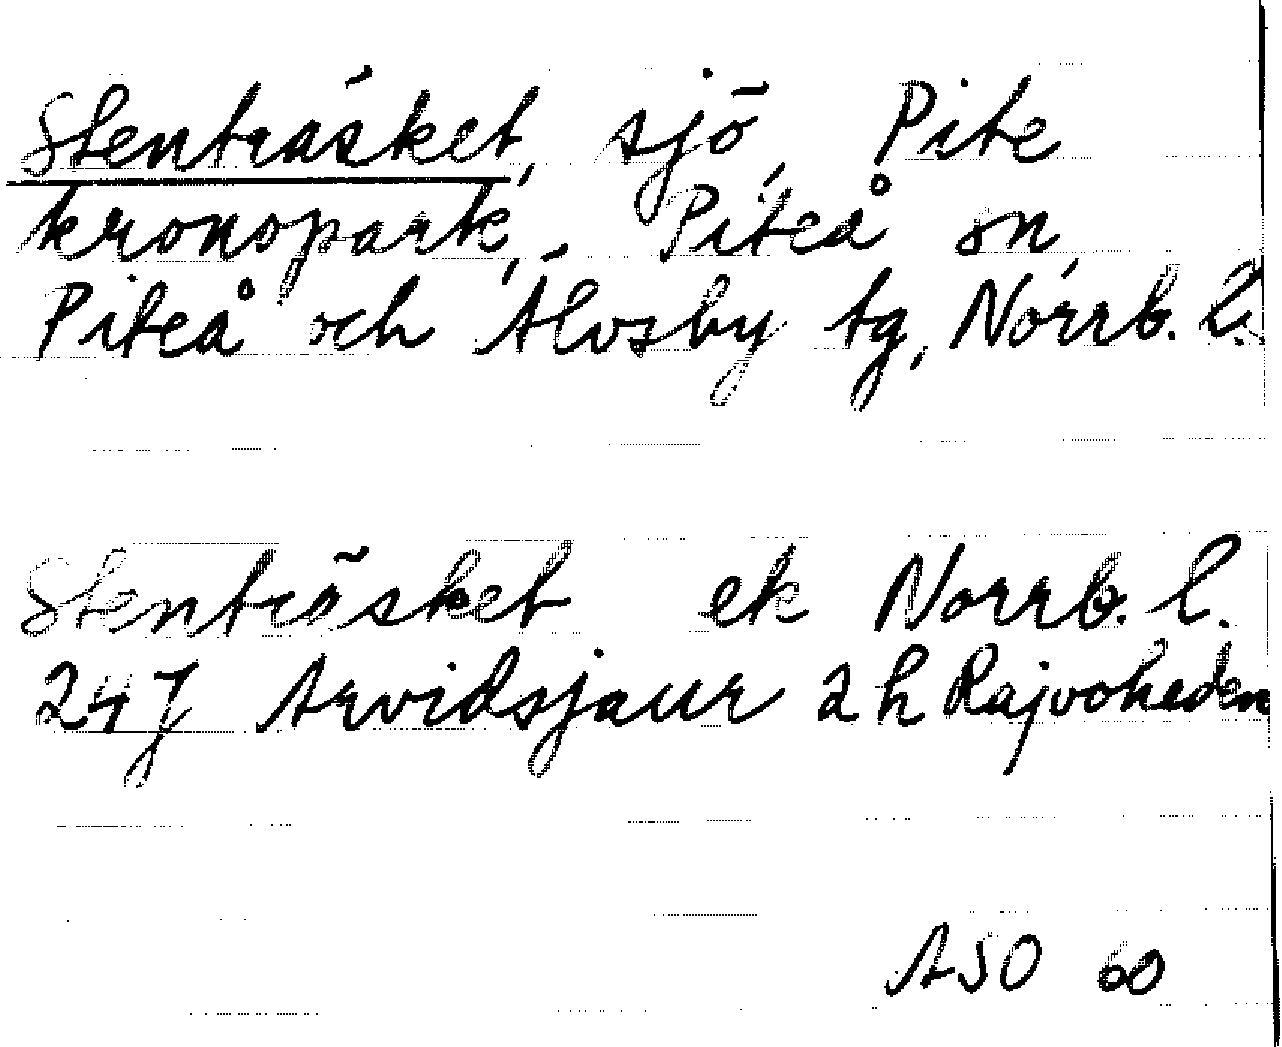 Stenträsket, sjö, Pite
kronopark, Piteå sn,
Piteå och Älvsby tg, Norrb. l.
Stenträsket ek Norrb. l.
24j Arvidsjaur 2h Rajvoheden
ASO 60